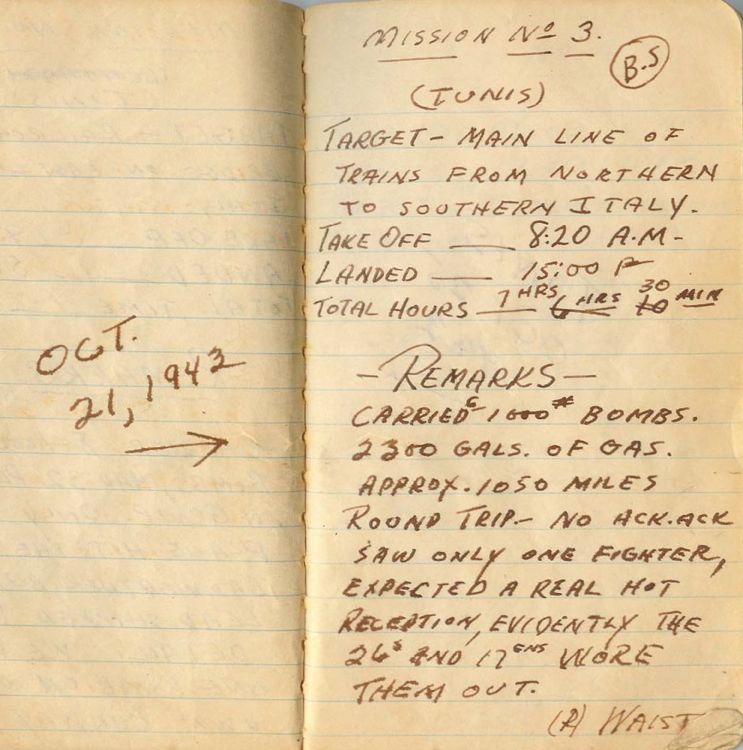 OCT.
21, 1943
MISSION No 3.
B.S
(TUNIS)
TARGET - MAIN LINE OF
TRAINS FROM NORTHERN
TO SOUTHERN ITALY.
TAKE OFF — 8:20 A.M-
LANDED — 15:00 P
TOTAL HOURS — 7 HRS 6 HRS 30 10 MIN
- REMARKS -
CARRIED 6-1000# BOMBS.
2300 GALS. OF GAS.
APPROX. 1050 MILES
ROUND TRIP.- NO ACK.ACK
SAW ONLY ONE FIGHTER,
EXPECTED A REAL HOT
RECEPTION, EVIDENTLY THE
26s AND 17ens WORE
THEM OUT.
(R) WAIST